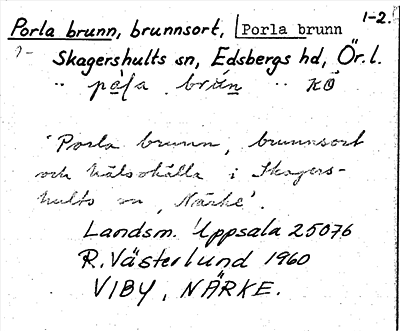 Porla brunn, brunnsort, Porla brunn 1-2.
Skagershults sn, Edsbergs hd, Ör. l.
KÖ
'Porla brunn, brunnsort
och hälsokälla i Skagers-
hults sn, Närke'.
Landsm. Uppsala 25076
R. Västerlund 1960
VIBY, NÄRKE.